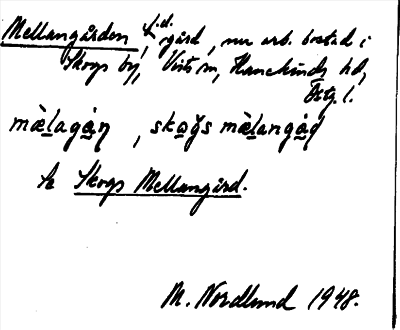 Mellangården, f.d. gård, nu arb. bostad i
Skogs by, Vists sn, Hanekinds hd,
Östg. l.
mælagån̥, skogs mælangård
Se Skogs Mellangård.
M. Nordlund 1948.